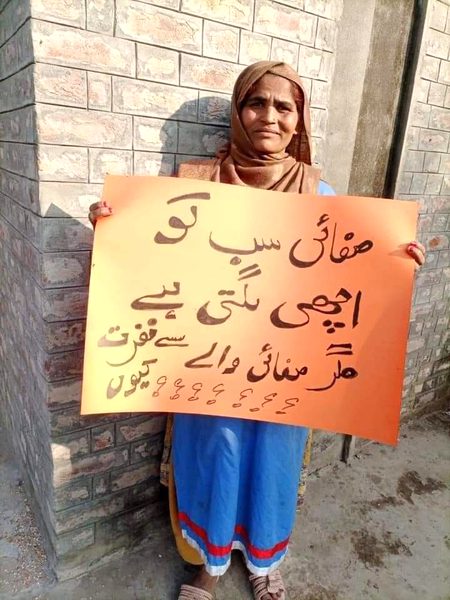 صفائی سب کو
اچھی لگتی ہے
مگر صفائی والے سے نفرت
کیوں ؟؟؟؟؟؟؟